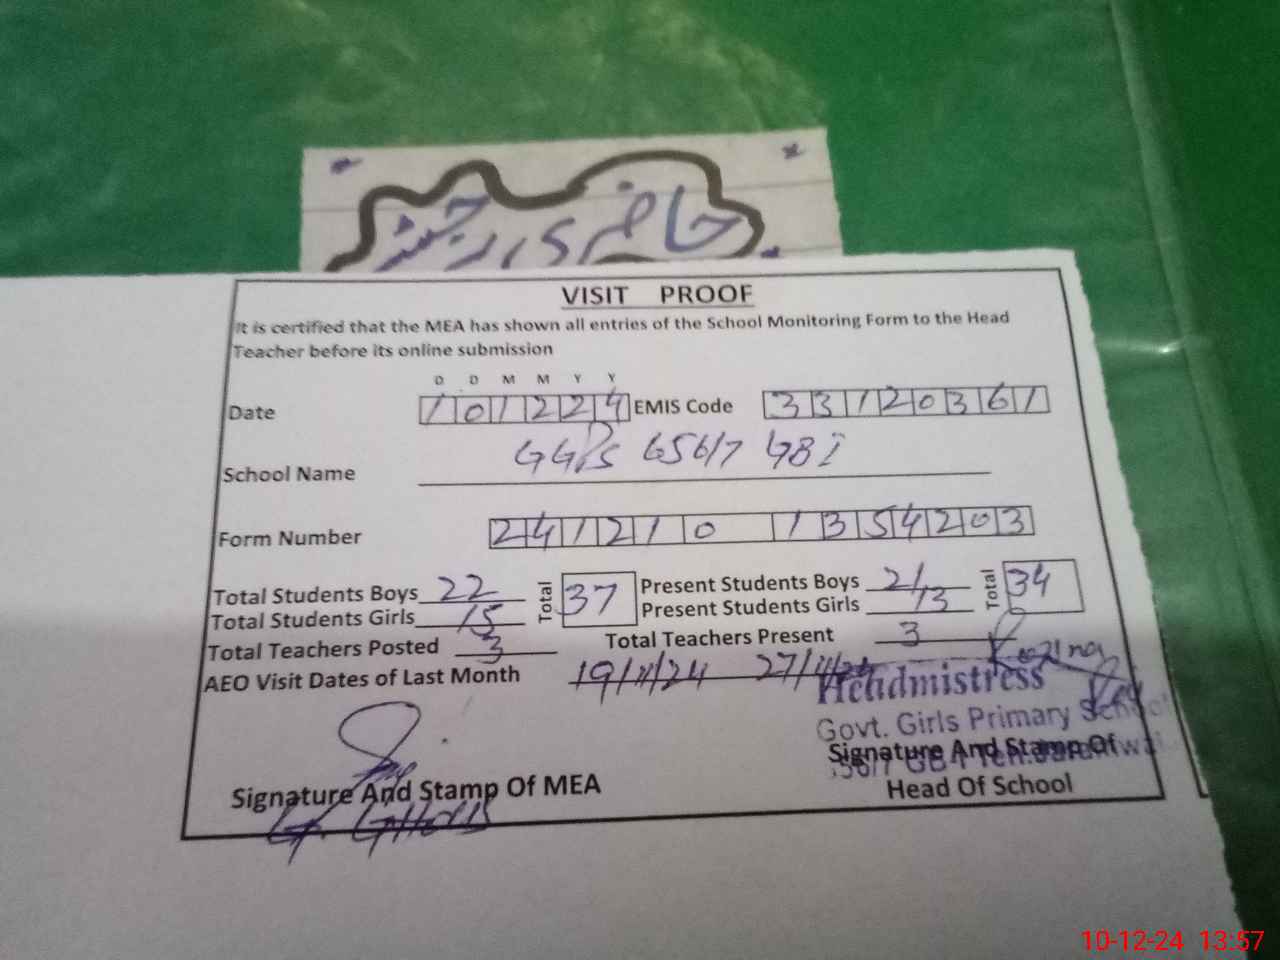 حاضری رجسٹر
VISIT PROOF
It is certified that the MEA has shown all entries of the School Monitoring Form to the Head
Teacher before its online submission
D D M M Y Y
Date 101224 EMIS Code 33120361
School Name GGPS 656/7 GB I
Form Number 241210 1354203
Total Students Boys 22 Total 37 Present Students Boys 21 Total 34
Total Students Girls 15 Present Students Girls 13
Total Teachers Posted 3 Total Teachers Present 3
AEO Visit Dates of Last Month 19/11/24 27/11/24
Headmistress
Govt. Girls Primary School
Signature And Stamp Of MEA
Signature And Stamp Of
Head Of School
10-12-24 13:57